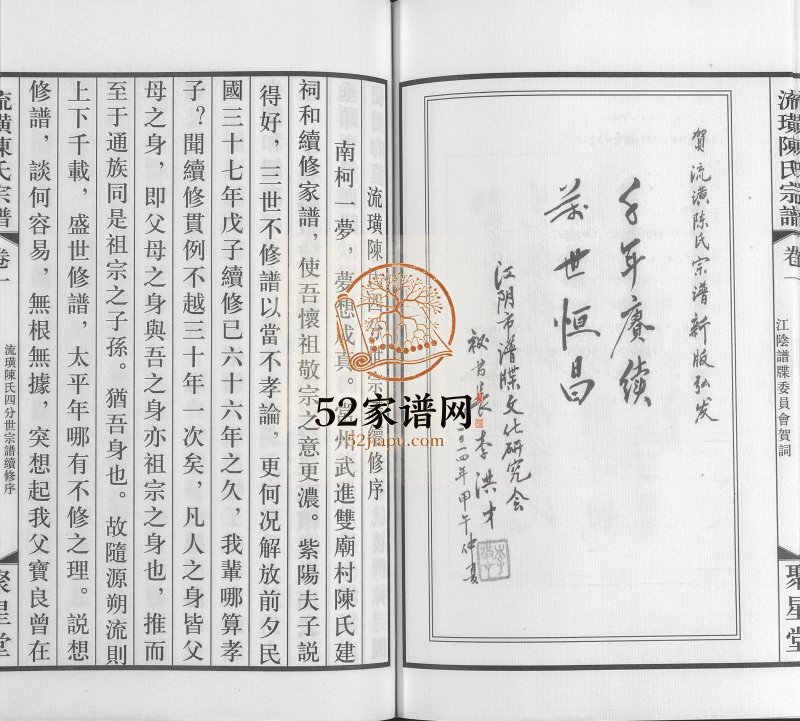 流璜陳氏宗譜
卷一
江陰譜牒委員會賀詞
聚星堂
賀流璜陈氏宗谱新版弘发
千年赓续
万世恒昌
江阴市谱牒文化研究会
秘书长李洪才
二〇一四年甲午仲夏
流璜陳氏四分世宗譜續修序
南柯一夢，夢想成真。常州武進雙廟村陳氏建
祠和續修家譜，使吾懷祖敬宗之意更濃。紫陽夫子説
得好，三世不修譜以當不孝論，更何況解放前夕民
國三十七年戊子續修已六十六年之久，我輩哪算孝
子？聞續修貫例不越三十年一次矣，凡人之身皆父
母之身，即父母之身與吾之身亦祖宗之身也，推而
至于通族同是祖宗之子孫。猶吾身也。故隨源朔流則
上下千載，盛世修譜，太平年哪有不修之理。説想
修譜，談何容易，無根無據，突想起我父寶良曾在
流璜陳氏宗譜
卷一
流璜陳氏四分世宗譜續修序
聚星堂
52家谱网
52jiapu.com